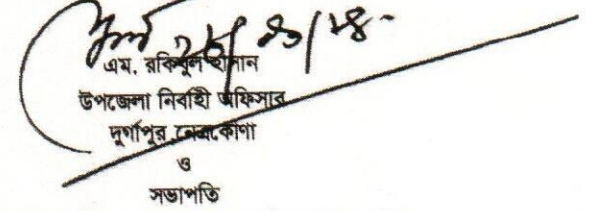 এম. রকিবুল হাসান
উপজেলা নির্বাহী অফিসার
দুর্গাপুর, নেত্রকোণা
ও
সভাপতি